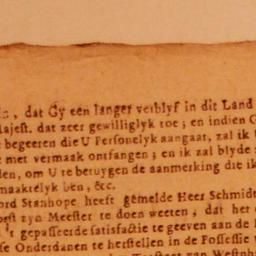 , dat Gy een langer verblyf in dit Land
Majest. dat zeer gewilliglyk toe; en indien G
begeeren die U Personelyk aangaat, zal ik
met vermaak ontfangen; en ik zal blyde
den, om U te betuygen de aanmerking dit ik
maakrelyk ben, &c.
ord Stanhope heeft gemelde Heer Schmidt
orst zyn Meester te doen weeten, dat her
't gepasseerde satisfactie te geeven aan de
se Onderdanen te herstellen in de Possessie
van Westph